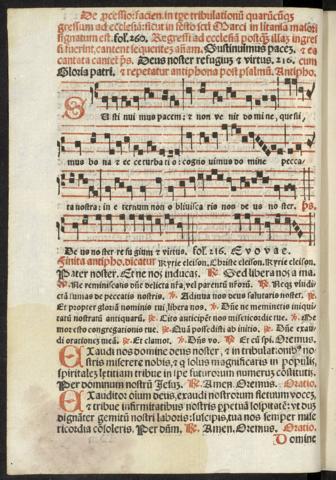 De pcessiõe facien. in tpe tribulationũ quarũcũqʒ
gressum ad ecclesiã: sicut in festo scti Marci in litania maiori
signatum est fol. 260. Regressi ad ecclesiã postqʒ illaʒ ingres
si fuerint, cantent sequentes añam. Sustinuimus pacem. & ea
cantata cantet ps. Deus noster refugiũ & virtus. 216. cum
Gloria patri. & repetatur antiphona post psalmũ. Antipho.
SUsti nui mus pacem: & non ve nit do mine, quesi,
mus bo na & ec ce turba ti o: cogno uimus do mine pecca
ta nostra: in e ternum non o bliuisca ris no e us no ster. ps.
De us no ster re fu gium & virtus. fol. 216. E v o v a e.
Finita antipho. dicatur Kyrie eleison. Christe eleison. Kyrie eleison.
Pater noster. Et ne nos inducas. ℟. Sed libera nos a ma.
℣. Ne reminiscaris dñe delicta nrã, vel parentũ nrõrũ. ℟. Neqʒ vindi
ctã sumas de peccatis nostris. ℣. Adiuva nos deus salutaris noster. ℟.
Et propter gloriã nominis tui libera nos. ℣. Dñe ne memineris iniqui
tatũ nostrarũ antiquarũ. ℟. Cito anticipẽt nos misericordie tue. ℣. Me
mor esto congregationis tue. ℟. Quã possedisti ab initio. ℣. Dñe exau
di orationes meã. ℟. Et clamor. ℣. Dñs vo. ℟. Et cũ spi. Oremus.
EXaudi nos domine deus noster, & in tribulationibꝰ no
stris miserere nobis, et q solus magnificatus in populis,
spiritales letitiam tribue in spe futurorum numerus constitutis.
Per dominum nostrũ Jesus. ℟. Amen. Oremus. Oratio.
EXauditor oium deus, exaudi nostrorum fletuum voces,
& tribue infirmitatibus nostris ppetuã sospitatẽ: vt dũ
dignãter gemitũ nostri laboris suscipis, tua nos semper mise
ricordia cõsoleris. Per dñm. ℟. Amen. Oremus. Oratio.
Domine